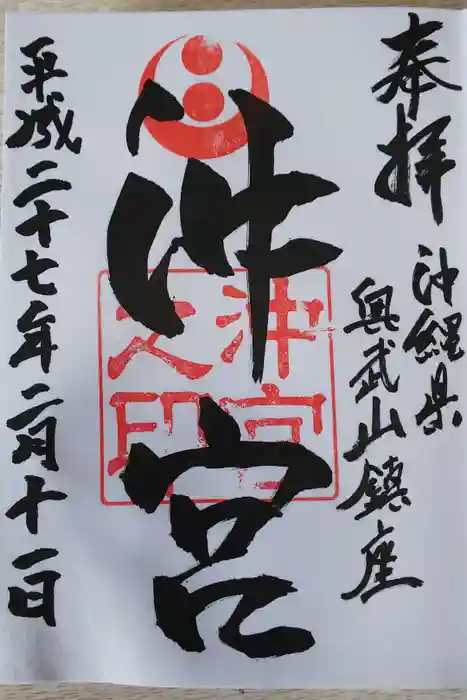 奉拝
沖縄県
奥武山鎮座
沖宮
沖宮
之印
平成二十七年二月十一日